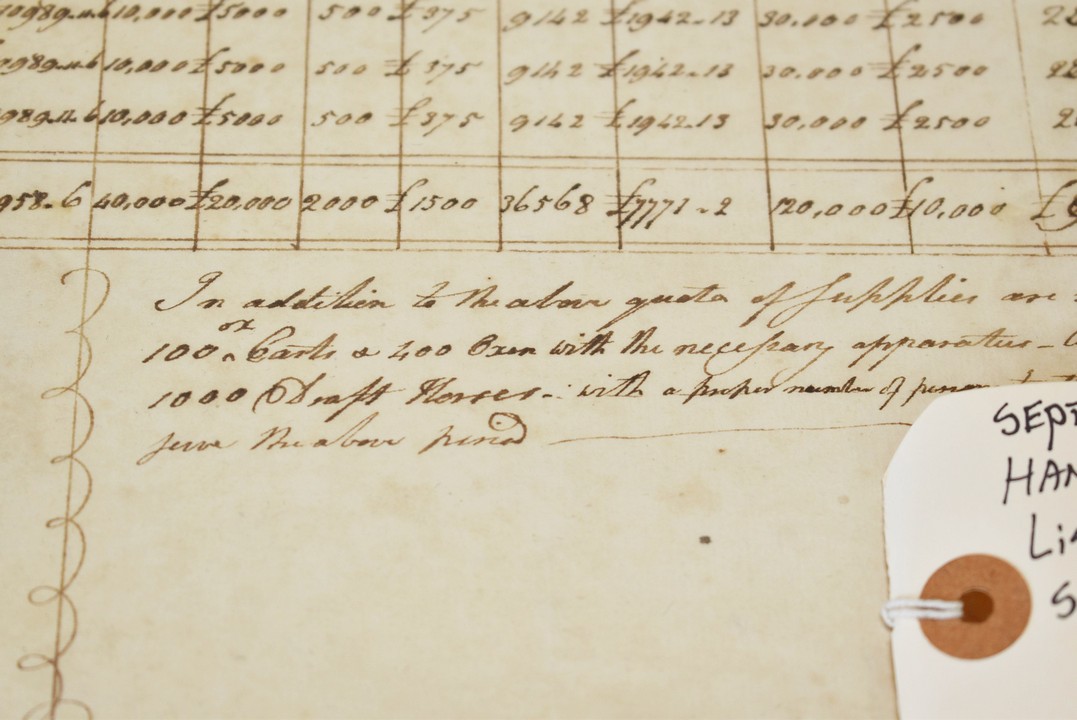 10,000 £5000 500 £375 9142 £1942.13 30,000 £2500
10,000 £5000 500 £375 9142 £1942.13 30.000 £2500
10,000 £5000 500 £375 9142 £1942.13 30,000 £2500
958.6 40,000 £20,000 2000 £1500 36568 £7771.2 120,000 £10,000
In addition to the above quota of Supplies are
100 ox Carts & 400 Oxen with the necessary apparatus
1000 Draft Horses with a proper number of
serve the above period
SEPT
HAN
Li
S